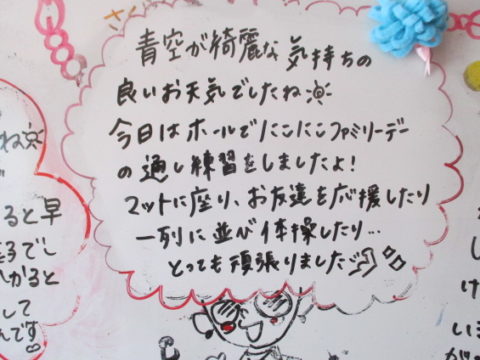 さく
青空が綺麗な気持ちの
良いお天気でしたね
今日はホールでにこにこファミリーデー
の通し練習をしましたよ！
マットに座り、お友達を応援したり
一列に並び体操したり…
とっても頑張りました
ね
ると早
でし
かると
して
んです
し
け
い
が